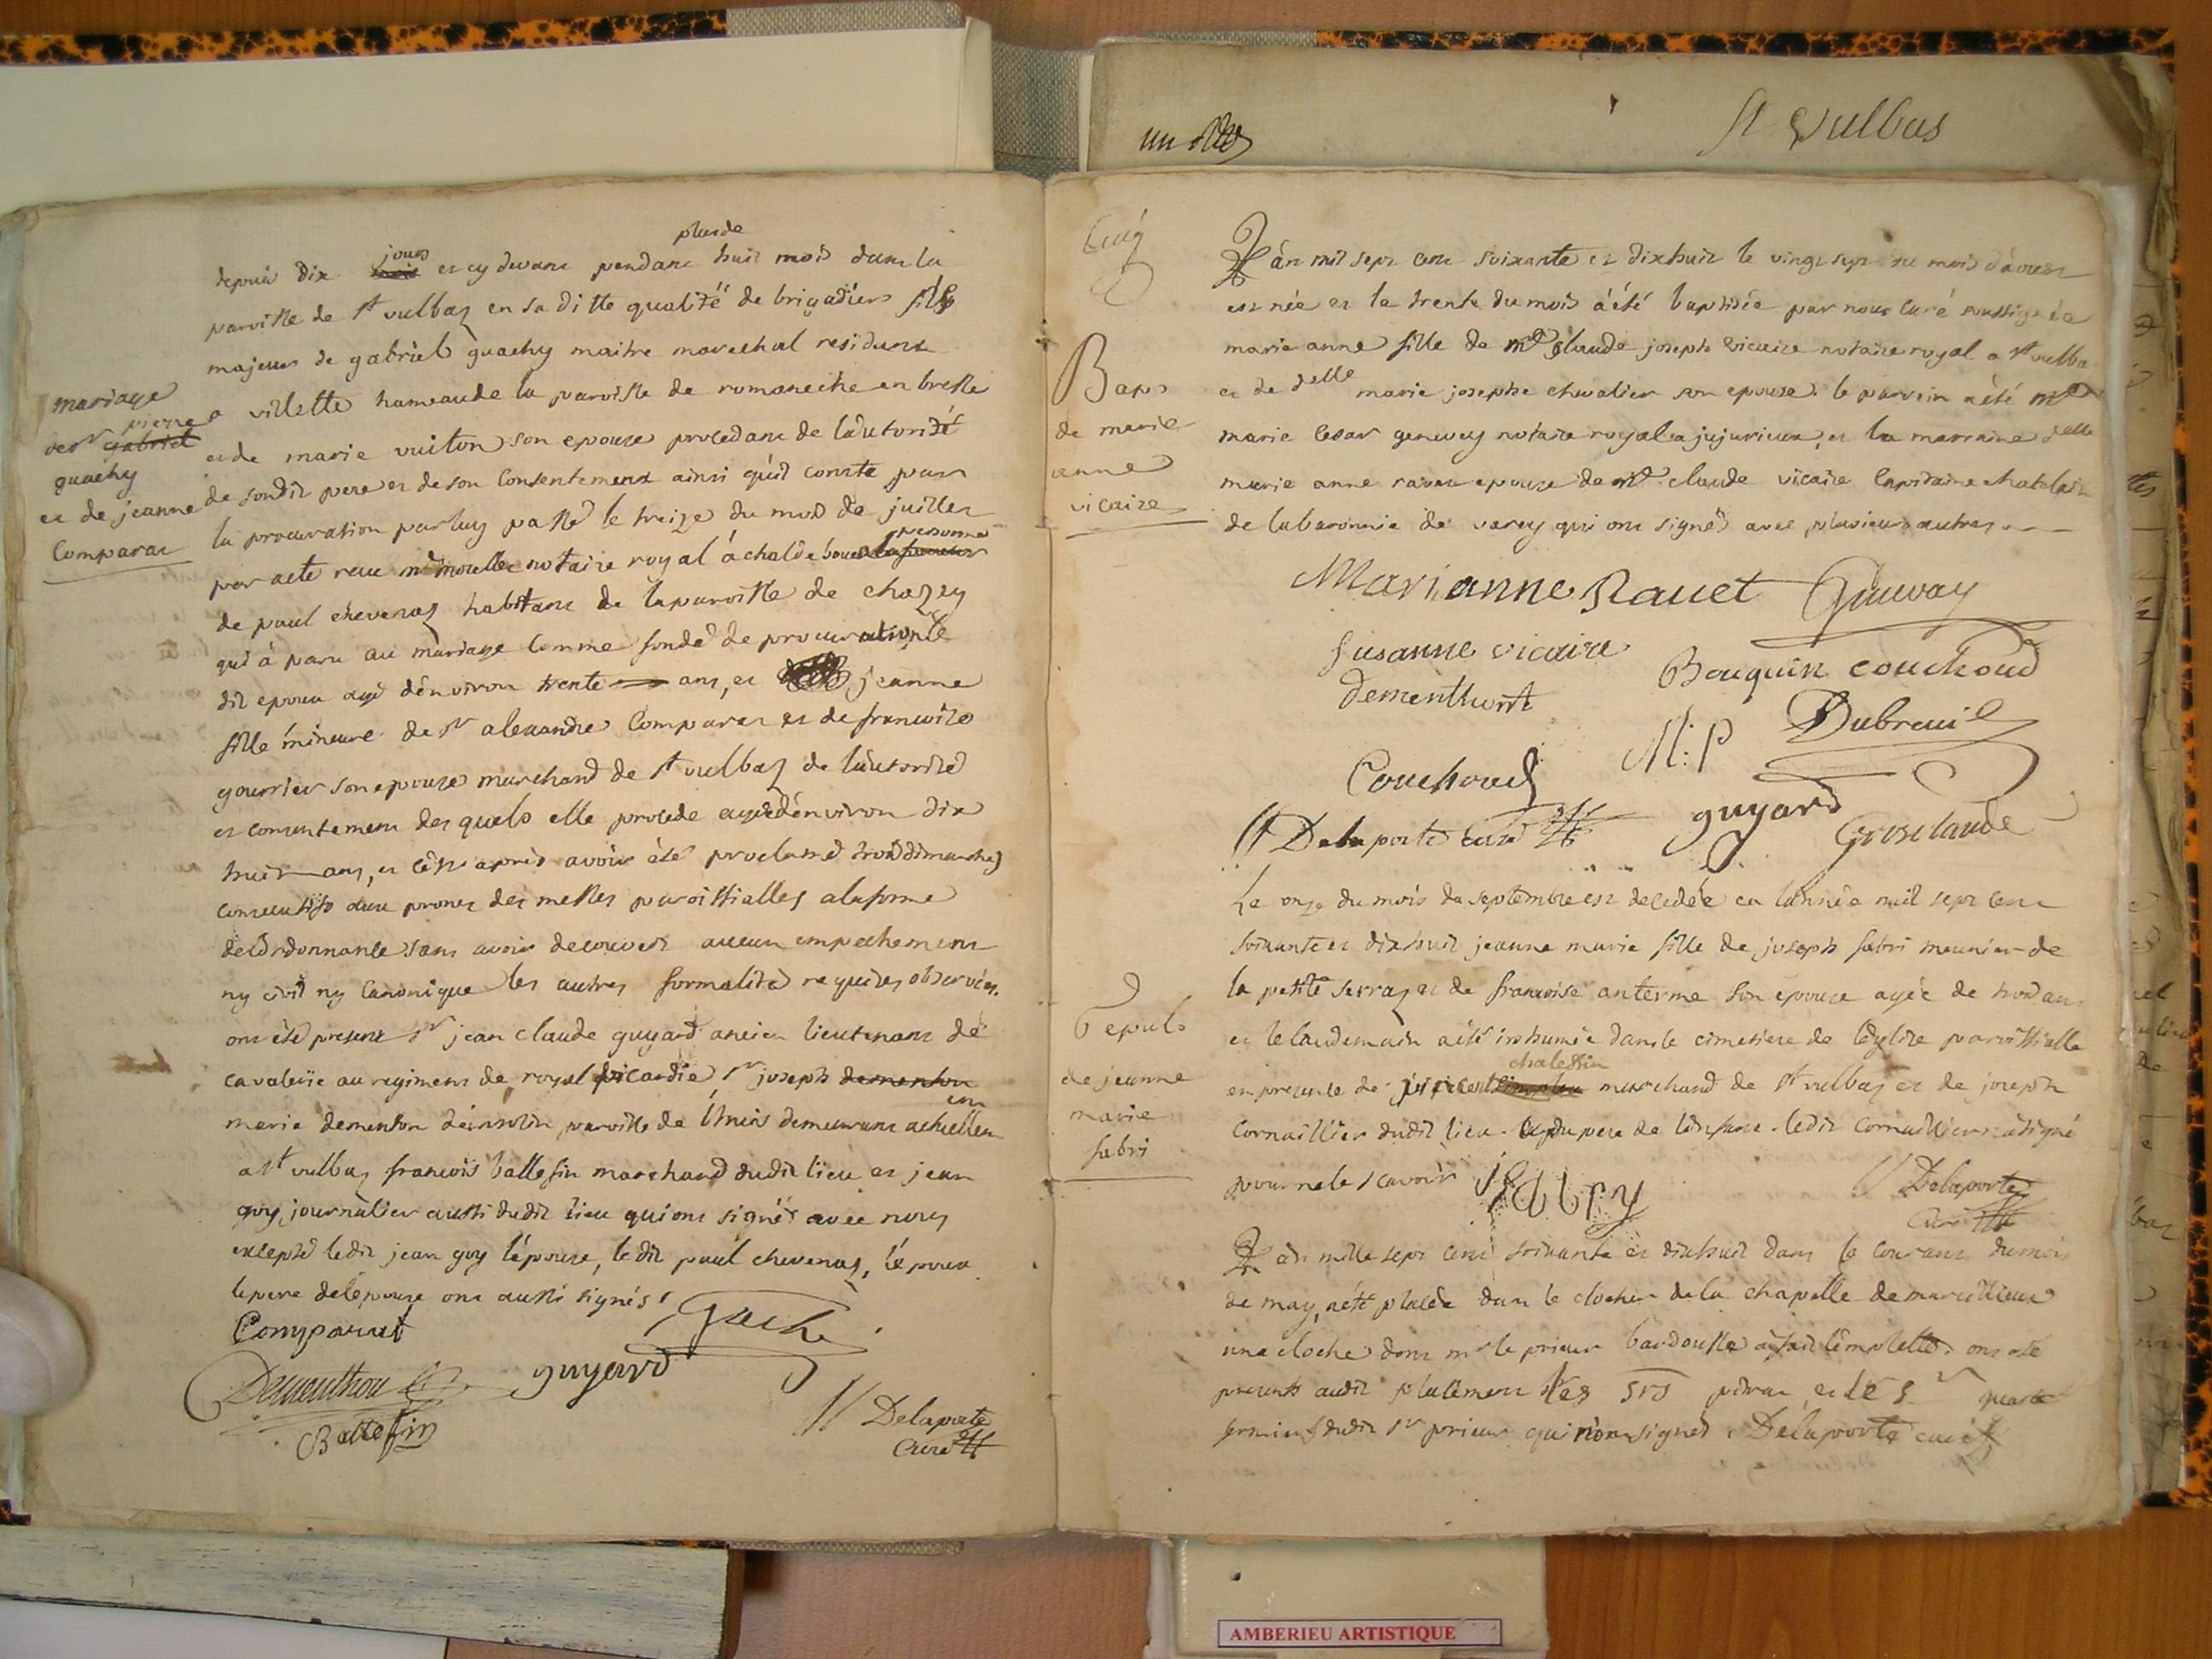 un
St Vulbas
depuis dix jours et cy devant pendant plus de huit mois dans la
paroisse de st vulbaz en sa ditte qualité de brigadier fils
majeur de gabriel guachy maitre marechal resident
a villette hameau de la paroisse de romaneche en bresse
et de marie vuiton son epouse procedant de l'autorité
de sondit pere et de son consentement ainsi qu'il conste par
la procuration par luy passé le treize du mois de juillet
par acte recu me notaire royal a personne
de paul chevenaz habitant de la paroisse de chazey
qui à paru au mariage comme fondé de procuration le
dit epoux agé d'environ trente ans, et jeanne
fille mineure de sr alexandre comparat et de francoise
gourrier son epouse marchand de st vulbaz de l'autorité
et consentement des quels elle procede agée d'environ dix
huit ans, et ce apres avoir été proclamé trois dimanches
consecutifs aux prones des messes paroissialles a la forme
de l'ordonnance sans avoir decouvert aucun empechement
ny civil ny canonique les autres formalités requises observées.
ont été present sr jean claude guyard ancien lieutenant de
cavalerie au regiment de royal picardie sr joseph dementhon
marie dementhon paroisse de demeurant actuellem
ent
a st vulbaz francois ballefin marchand dudit lieu et jean
guy journalier aussi dudit lieu qui ont signés avec nous
excepté ledit jean guy l'epouse, ledit paul chevenaz, l'epoux
le pere de l'epouse ont aussi signés
Comparat
Gache
Dementhon
guyard
Ballefin
Delaporte
Curé
mariage
de sr pierre gabriel
guachy
et de jeanne
Comparat
Cinq
L'an mil sept cent soixante et dixhuit le vingt sept du mois d'aoust
est née et la trente du mois a été baptisée par nous curé soussigné
marie anne fille de me claude joseph vicaire notaire royal a st vulba
et de delle marie josephe chevalier son epouse. le parrain a été me
marie cesar genevey notaire royal a jujurieux, et la marraine delle
marie anne ravet epouse de me claude vicaire capitaine chatelain
de la baronnie de varey qui ont signés avec plusieurs autres
Marianne Rauet
Genevay
Susanne vicaire
Bouquin couchoud
dementhont
M:P
Dubreuil
Couchoud
guyard
Delaporte curé
Grosclaude
Bapt
de marie
anne
vicaire
Le onze du mois de septembre est decedée en l'année mil sept cent
soixante et dixhuit jeanne marie fille de joseph fabri meunier de
la petite serraz et de francoise anterme son epouse agée de trois ans
et le landemain a été inhumée dans le cimetiere de l'eglise paroissialle
en presence de vincent chalessin marchand de st vulbaz et de joseph
cornaillier dudit lieu et du pere de l'enfant. ledit cornaillier n'a signé
pour ne le scavoir
J Fabry
Delaporte
Curé
Sepult
de jeanne
marie
fabri
L'an mille sept cent soixante et dixhuit dans le courant du mois
de may, a été placée dans le clocher de la chapelle de marcillieux
une cloche dont mr le prieur bardousse a fait l'emplette. ont été
presents audit placement les srs pitrat et le sr quart
fermiers dudit sr prieur qui n'ont signés. Delaporte curé
AMBERIEU ARTISTIQUE